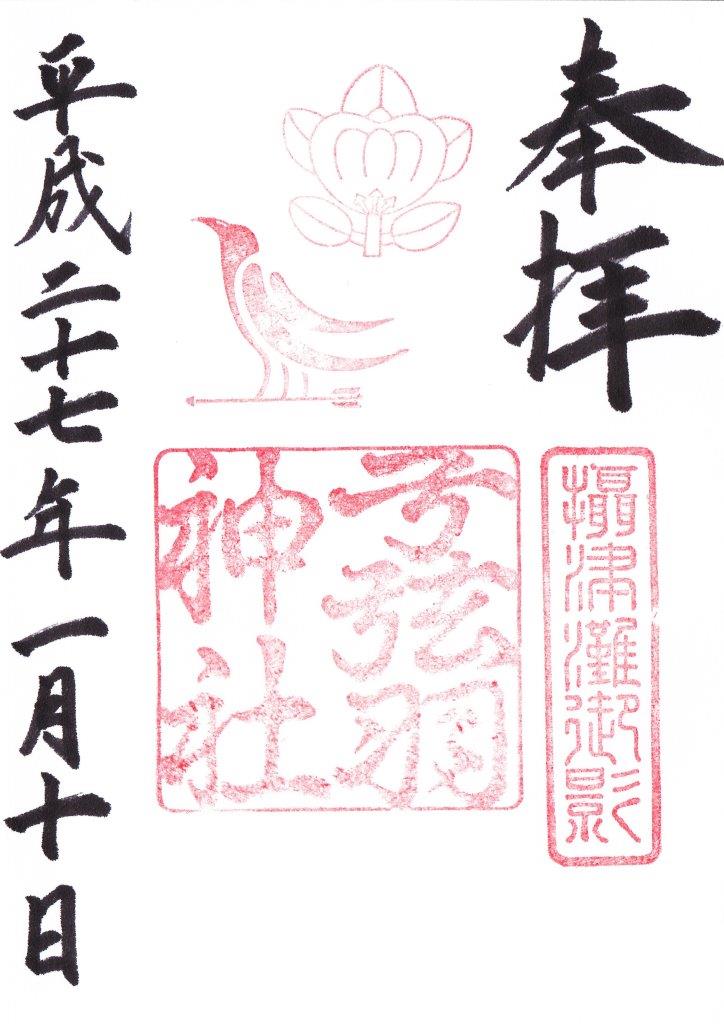 奉拝
攝津灘御影
弓弦羽
神社
平成二十七年一月十日